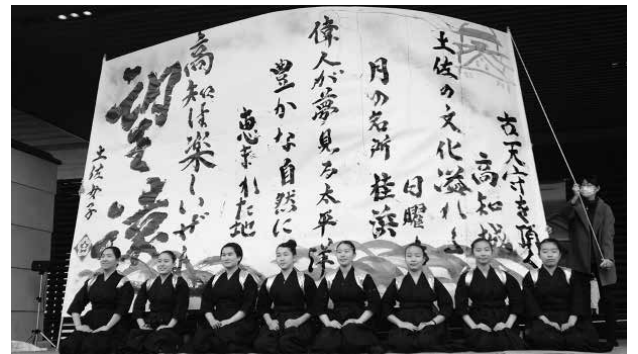 古天守を頂
高知城
土佐の文化溢れる
日曜
月の名所 桂浜
偉人が夢見る太平洋
豊かな自然に
恵まれた地
高知は楽しいぜ
土佐女子